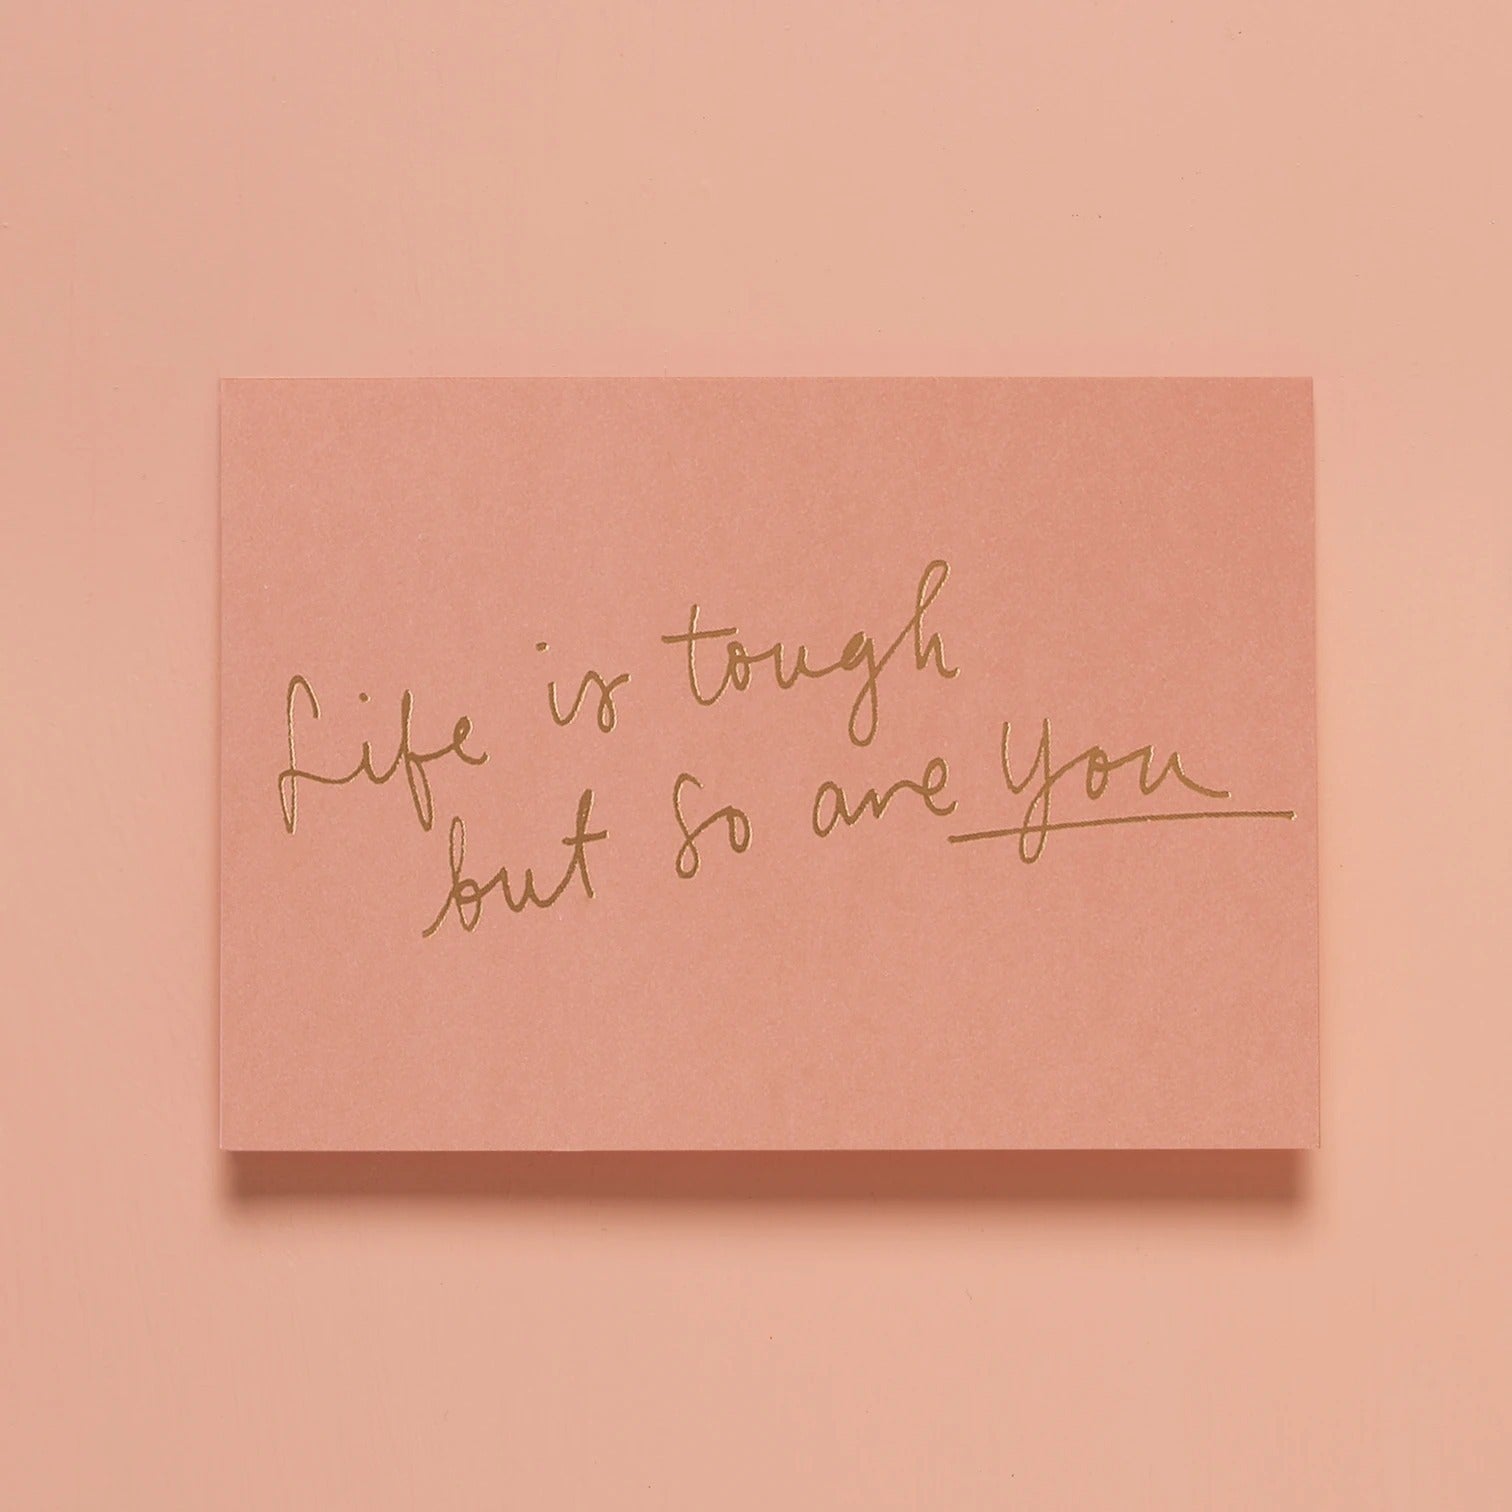 Life is tough
but so are you